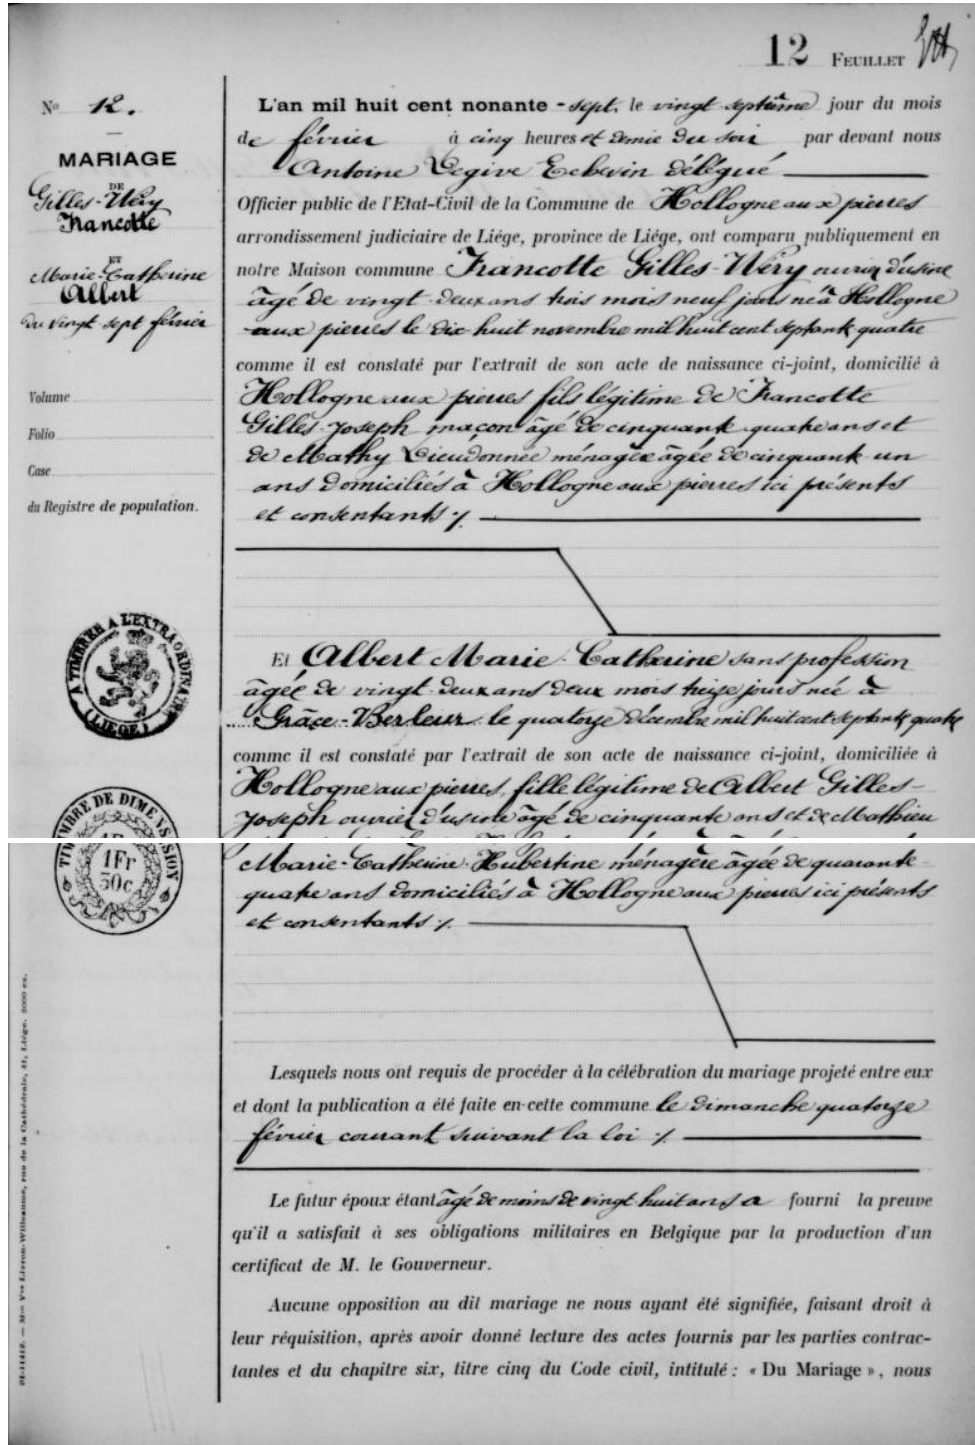 12 FEUILLET
No 12.
MARIAGE
DE
Gilles-Wéry
Francotte
ET
Marie-Catherine
Albert
du vingt sept février
Volume
Folio
Case
du Registre de population.
A TIMBRER A L'EXTRAORDINAIRE
(LIEGE)
TIMBRE DE DIMENSION
1Fr
50c
L'an mil huit cent nonante-sept, le vingt septième jour du mois
de février à cinq heures et demie du soir par devant nous
Antoine Legive Echevin délégué
Officier public de l'Etat-Civil de la Commune de Hollogne aux pierres
arrondissement judiciaire de Liége, province de Liége, ont comparu publiquement en
notre Maison commune Francotte Gilles-Wéry ouvrier d'usine
âgé de vingt-deux ans trois mois neuf jours né à Hollogne
aux pierres le dix-huit novembre mil huit cent septante quatre
comme il est constaté par l'extrait de son acte de naissance ci-joint, domicilié à
Hollogne aux pierres fils légitime de Francotte
Gilles-Joseph maçon âgé de cinquante-quatre ans et
de Mathy Dieudonnée ménagère âgée de cinquante-un
ans domiciliés à Hollogne aux pierres ici présents
et consentants ./.
Et Albert Marie-Catherine sans profession
âgée de vingt-deux ans deux mois treize jours née à
Grâce-Berleur le quatorze décembre mil huit cent septante quatre
comme il est constaté par l'extrait de son acte de naissance ci-joint, domiciliée à
Hollogne aux pierres, fille légitime de Albert Gilles-
Joseph ouvrier d'usine âgé de cinquante ans et de Mathieu
Marie-Catherine-Hubertine ménagère âgée de quarante-
quatre ans domiciliés à Hollogne aux pierres ici présents
et consentants ./.
Lesquels nous ont requis de procéder à la célébration du mariage projeté entre eux
et dont la publication a été faite en cette commune le dimanche quatorze
février courant suivant la loi ./.
Le futur époux étant âgé de moins de vingt huit ans a fourni la preuve
qu'il a satisfait à ses obligations militaires en Belgique par la production d'un
certificat de M. le Gouverneur.
Aucune opposition au dit mariage ne nous ayant été signifiée, faisant droit à
leur réquisition, après avoir donné lecture des actes fournis par les parties contrac-
tantes et du chapitre six, titre cinq du Code civil, intitulé : « Du Mariage », nous
Mon Vve Livron-Willeaume, rue de la Cathédrale, 41, Liége. 3000 ex.